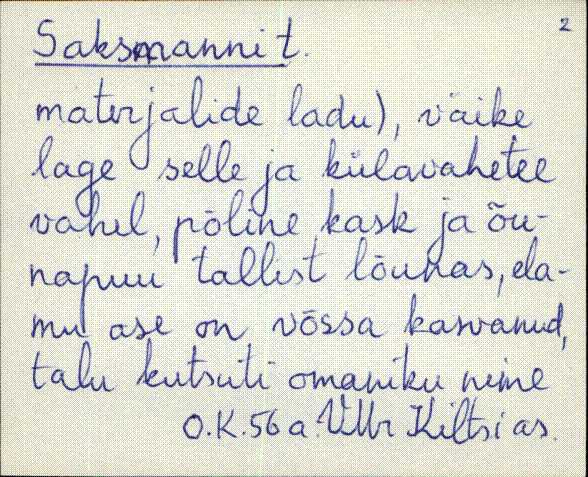 2
Saksmanni t.
materjalide ladu), väike
lage selle ja külavahetee
vahel, põline kask ja õu-
napuu tallist lõunas, ela-
mu ase on võssa kasvanud,
talu kutsuti omaniku nime
O.K. 56 a. VMr Kiltsi as.